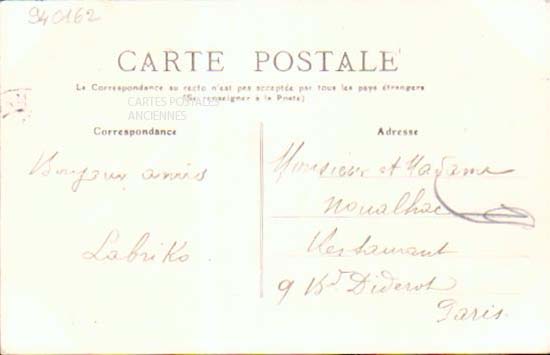 940162
CARTE POSTALE
La Correspondance au recto n'est pas acceptée par tous les pays étrangers
(Se renseigner à la Poste)
CARTES POSTALES
ANCIENNES
Correspondance
Adresse
Bonjour amis
Labriko
Monsieur et Madame
Noualhac
Restaurant
9 Bd Diderot
Paris